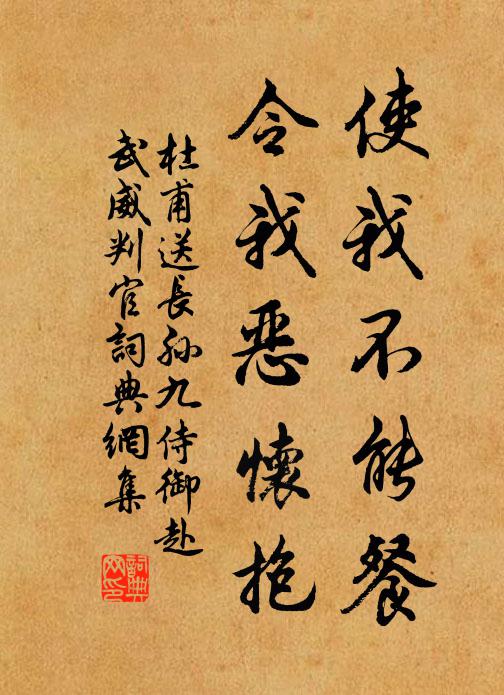 使我不能餐
令我恶懷抱
杜甫送長孙九侍御赴
武威判官詞典網集
詞典
网印